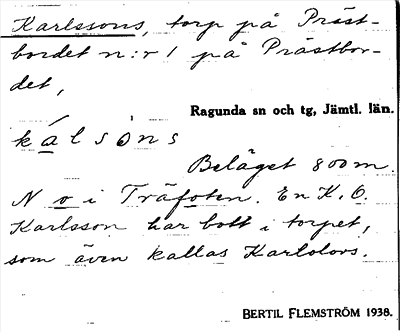 Karlssons, torp på Präst-
bordet n:r 1 på Prästbor-
det,
Ragunda sn och tg, Jämtl. län.
kálsòns
Beläget 800 m.
N o i Träfoten. En K. O.
Karlsson har bott i torpet,
som även kallas
BERTIL FLEMSTRÖM 1938.